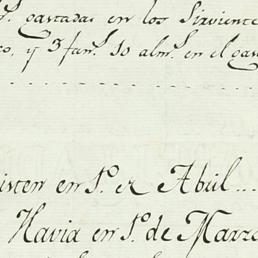 gastadas en los Sirviente
y 3 fan.s 10 alm.s en el gas
isten en 1.º de Abril...
Havia en 1.º de Marzo